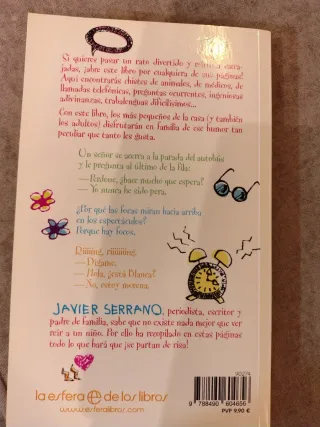 Si quieres pasar un rato divertido y reírte a carca-
jadas, ¡abre este libro por cualquiera de sus páginas!
Aquí encontrarás chistes de animales, de médicos, de
llamadas telefónicas, preguntas ocurrentes, ingeniosas
adivinanzas, trabalenguas dificilísimos...
Con este libro, los más pequeños de la casa (y también
los adultos) disfrutarán en familia de ese humor tan
peculiar que tanto les gusta.
Un señor se acerca a la parada del autobús
y le pregunta al último de la fila:
—Perdone, ¿hace mucho que espera?
—Yo nunca he sido pera.
¿Por qué las focas miran hacia arriba
en los espectáculos?
Porque hay focos.
Riiiiing, riiiiiing.
—Dígame.
—Hola, ¿está Blanca?
—No, estoy morena.
JAVIER SERRANO, periodista, escritor y
padre de familia, sabe que no existe nada mejor que ver
reír a un niño. Por ello ha recopilado en estas páginas
todo lo que hará que ¡se partan de risa!
la esfera de los libros
www.esferalibros.com
90274
9 788490 604656
PVP 9,90 €